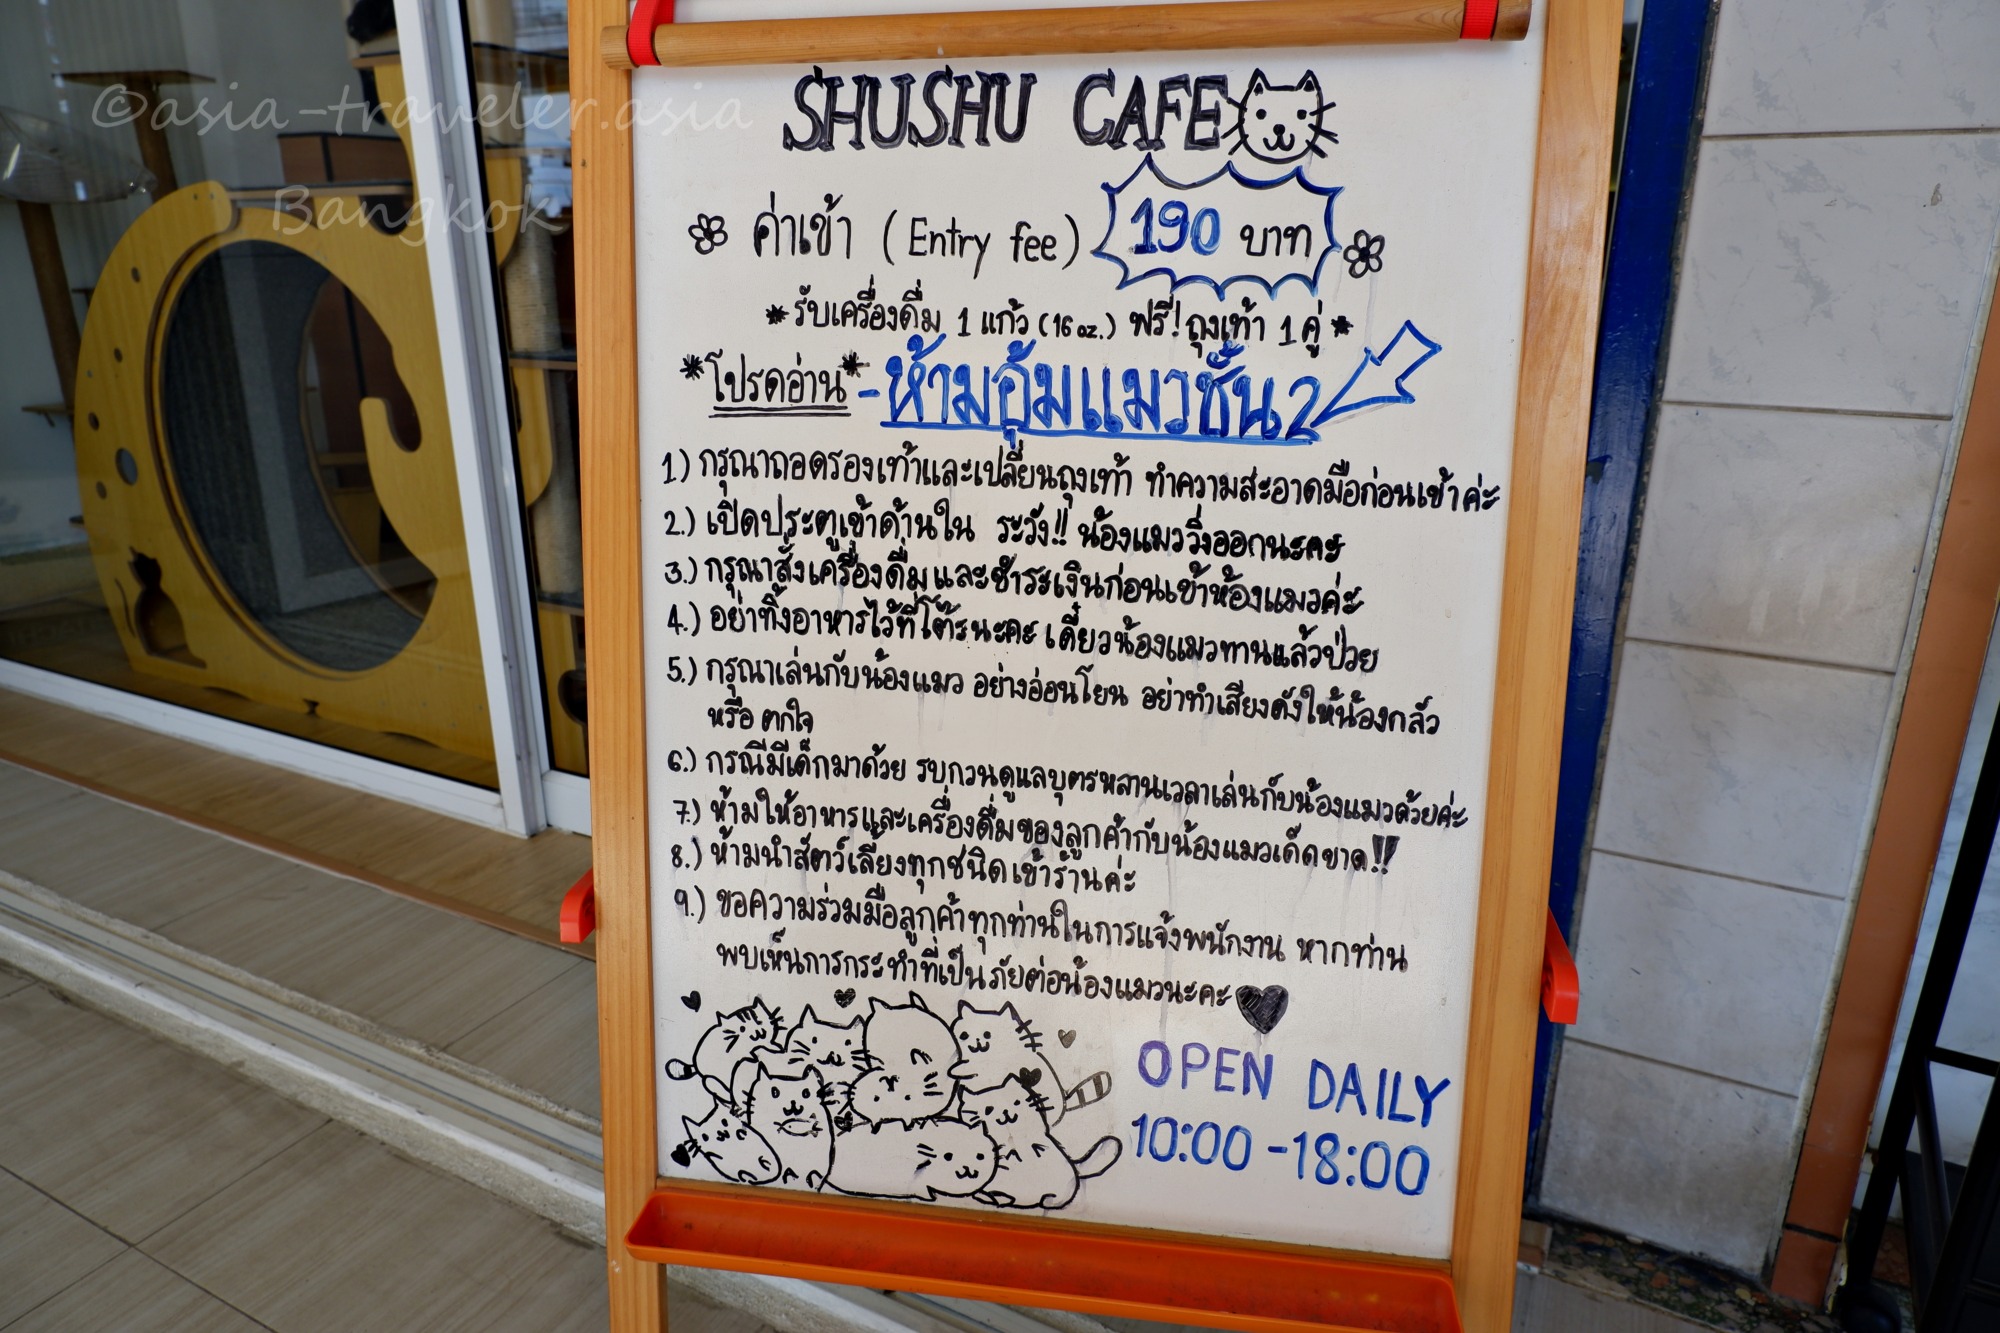 ©asia-traveler.asia
Bangkok
SHUSHU CAFE
ค่าเข้า (Entry fee) 190 บาท
*รับเครื่องดื่ม 1 แก้ว (16 oz.) ฟรี! ถุงเท้า 1 คู่*
*โปรดอ่าน* -ห้ามอุ้มแมวชั้น 2
1.) กรุณาถอดรองเท้าและเปลี่ยนถุงเท้า ทำความสะอาดมือก่อนเข้าค่ะ
2.) เปิดประตูเข้าด้านใน ระวัง!! น้องแมววิ่งออกนะคะ
3.) กรุณาสั่งเครื่องดื่ม และชำระเงินก่อนเข้าห้องแมวค่ะ
4.) อย่าทิ้งอาหารไว้ที่โต๊ะนะคะ เดี๋ยวน้องแมวทานแล้วป่วย
5.) กรุณาเล่นกับน้องแมว อย่างอ่อนโยน อย่าทำเสียงดังให้น้องกลัว
หรือ ตกใจ
6.) กรณีมีเด็กมาด้วย รบกวนดูแลบุตรหลานเวลาเล่นกับน้องแมวด้วยค่ะ
7.) ห้ามให้อาหารและเครื่องดื่มของลูกค้ากับน้องแมวเด็ดขาด!!
8.) ห้ามนำสัตว์เลี้ยงทุกชนิดเข้าร้านค่ะ
9.) ขอความร่วมมือลูกค้าทุกท่านในการแจ้งพนักงาน หากท่าน
พบเห็นการกระทำที่เป็นภัยต่อน้องแมวนะคะ
OPEN DAILY
10:00 -18:00